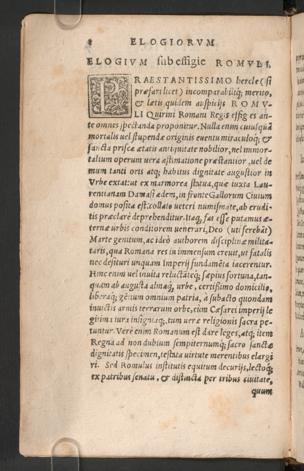 8 ELOGIORVM
ELOGIVM sub effigie ROMVLI.
PRAESTANTISSIMO hercle (si
præfari licet) incomparabiliq; merito,
& lætis quidem auspicijs ROMV-
LI Quirini Romani Regis effigies an-
te omnes spectanda proponitur. Nulla enim cuiusquã
mortalis uel stupendæ originis euentu miraculoq; &
sancta priscæ ætatis antiquitate nobilior, nel immor-
talium operum uera æstimatione præstantior, uel de-
mum tanti oris atq; habitus dignitate augustior in
Vrbe extat: ut ex marmorea statua, quæ iuxta Lau-
rentianam Damasi ædem, in fronte Gallorum Ciuium
domus posita est: collato ueteri numismate, ab erudi-
tis præclarè deprehenditur. Itaq; fas esse putamus æ-
ternæ urbis conditorem uenerari, Deo (uti ferebãt)
Marte genitum, ac ideò authorem disciplinæ milita-
ris, qua Romana res in immensum creuit, ut fatalis
nec desituri unquam Imperij fundamẽta iacerentur.
Hinc enim uel inuita reluctãteq; sæpius fortuna, tan-
quam ab augusta almaq; urbe, certißimo domicilio,
liberaq; gentium omnium patria, à subacto quondam
inuictis armis terrarum orbe, cum Cæsarei imperij le
gitima iura insigniaq;, tum ueræ religionis sacra pe-
tuntur. Verè enim Romanum est dare leges, atq; item
Regna ad non dubium sempiternumq; sacro sanctæ
dignitatis specimen, testata uirtute merentibus elargi
ri. Sed Romulus institutis equitum decurijs, lectoq;
ex patribus senatu, & distincta per tribus ciuitate,
quum